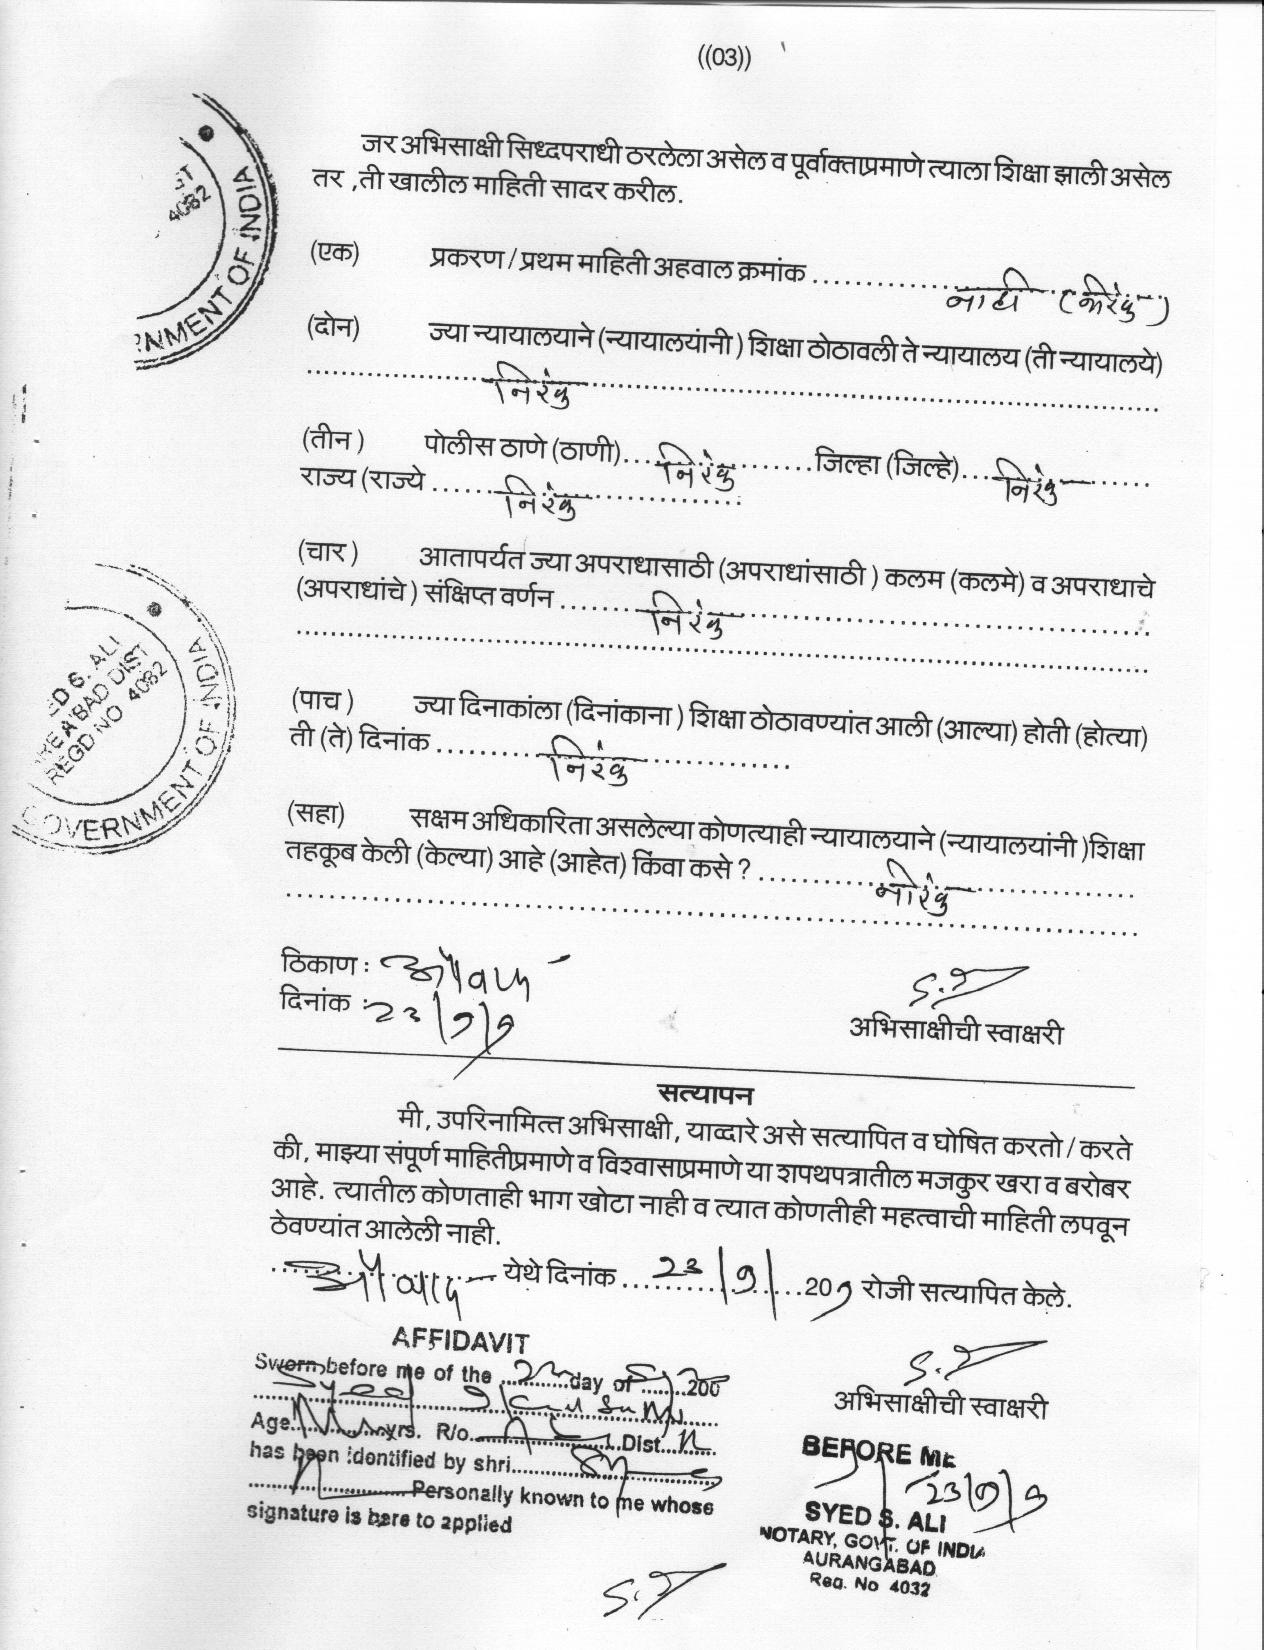 ((03))
जर अभिसाक्षी सिध्दपराधी ठरलेला असेल व पूर्वाक्ताप्रमाणे त्याला शिक्षा झाली असेल
तर ,ती खालील माहिती सादर करील.
(एक) प्रकरण / प्रथम माहिती अहवाल क्रमांक ........................
नाही (निरंक)
(दोन) ज्या न्यायालयाने (न्यायालयांनी ) शिक्षा ठोठावली ते न्यायालय (ती न्यायालये)
निरंक
(तीन ) पोलीस ठाणे (ठाणी)... निरंक ........ जिल्हा (जिल्हे)... निरंक ......
राज्य (राज्ये ...... निरंक ............
(चार ) आतापर्यत ज्या अपराधासाठी (अपराधांसाठी ) कलम (कलमे) व अपराधाचे
(अपराधांचे ) संक्षिप्त वर्णन ...... निरंक ..............................
(पाच ) ज्या दिनाकांला (दिनांकाना ) शिक्षा ठोठावण्यांत आली (आल्या) होती (होत्या)
ती (ते) दिनांक ......... निरंक ............
(सहा) सक्षम अधिकारिता असलेल्या कोणत्याही न्यायालयाने (न्यायालयांनी )शिक्षा
तहकूब केली (केल्या) आहे (आहेत) किंवा कसे ? ......... निरंक ..............
ठिकाण :
दिनांक : 23/9/9
अभिसाक्षीची स्वाक्षरी
सत्यापन
मी, उपरिनामित्त अभिसाक्षी, याव्दारे असे सत्यापित व घोषित करतो / करते
की, माझ्या संपूर्ण माहितीप्रमाणे व विश्वासाप्रमाणे या शपथपत्रातील मजकुर खरा व बरोबर
आहे. त्यातील कोणताही भाग खोटा नाही व त्यात कोणतीही महत्वाची माहिती लपवून
ठेवण्यांत आलेली नाही.
येथे दिनांक ... 23/9/ ...209 रोजी सत्यापित केले.
अभिसाक्षीची स्वाक्षरी
AFFIDAVIT
Sworn before me of the ... 23 day of ... 200
Syed
Age ... yrs. R/o ... Dist ...
has been identified by shri ...
... Personally known to me whose
signature is bare to applied
BEFORE ME
23/9/9
SYED S. ALI
NOTARY, GOVT. OF INDIA
AURANGABAD
Reg. No 4032
4082
GOVERNMENT OF INDIA
S. ALI
A'BAD DIST
REGD NO 4082
GOVERNMENT OF INDIA